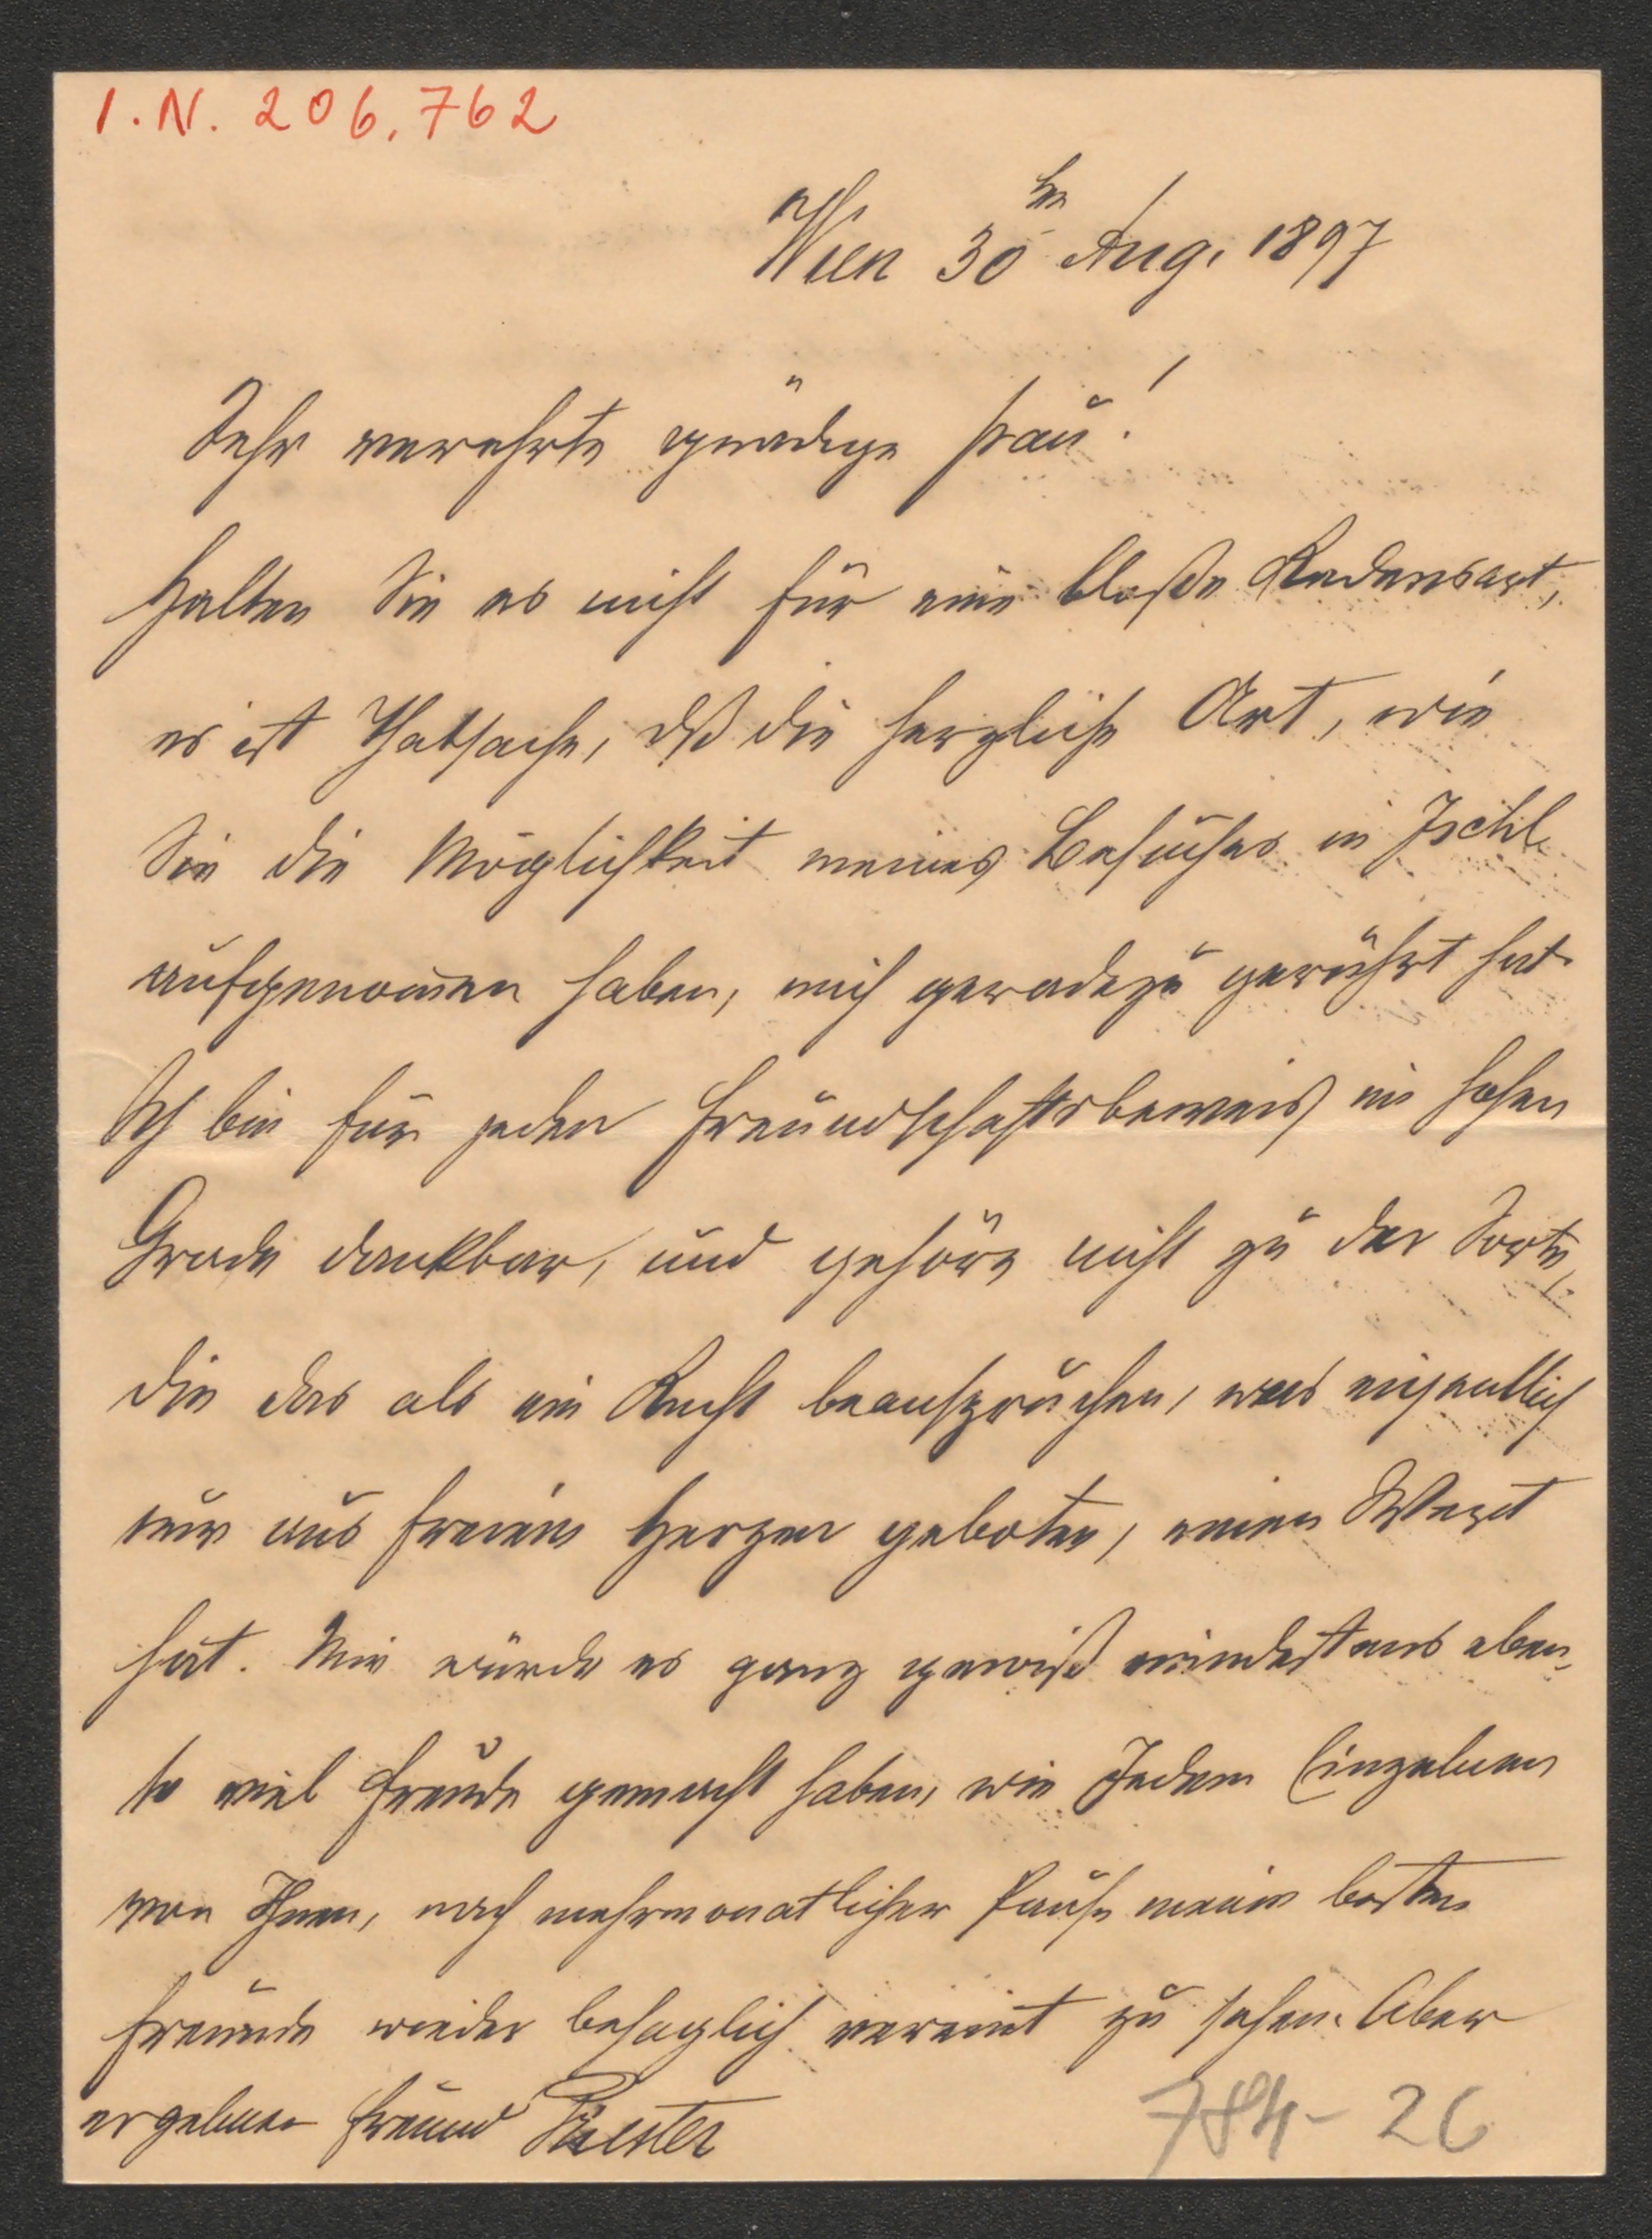 I.N. 206.762
Wien 30ten Aug. 1897
Sehr verehrte gnädige Frau!
Halten Sie es nicht für eine bloße Redensart,
es ist Thatsache, dß die herzliche Art, wie
Sie die Möglichkeit meines Besuches in Ischl
aufgenom̅en haben, mich geradezu gerührt hat.
Ich bin für jeden Freundschaftsbeweis im hohen
Grade dankbar, und gehöre nicht zu der Sorte,
die das als ein Recht beanspruchen, was eigentlich
nur aus freiem Herzen geboten, einen Wert
hat. Mir würde es ganz gewiß mindestens eben
so viel Freude gemacht haben, wie Jedem Einzelnen
von Ihnen, nach mehrmonatlicher Pause meine besten
Freunde wieder behaglich vereint zu sehen. Aber
ergebener Freund
784-26